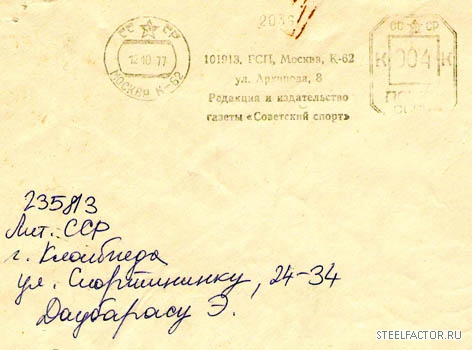 СС СР
12 10 77
МОСКВА К-62
101913, ГСП, Москва, К-62
ул. Архипова, 8
Редакция и издательство
газеты «Советский спорт»
СС СР
К 004 К
235813
Лит. ССР
г. Клайпеда
ул. Спортининку, 24-34
Даубарасу Э.
STEELFACTOR.RU